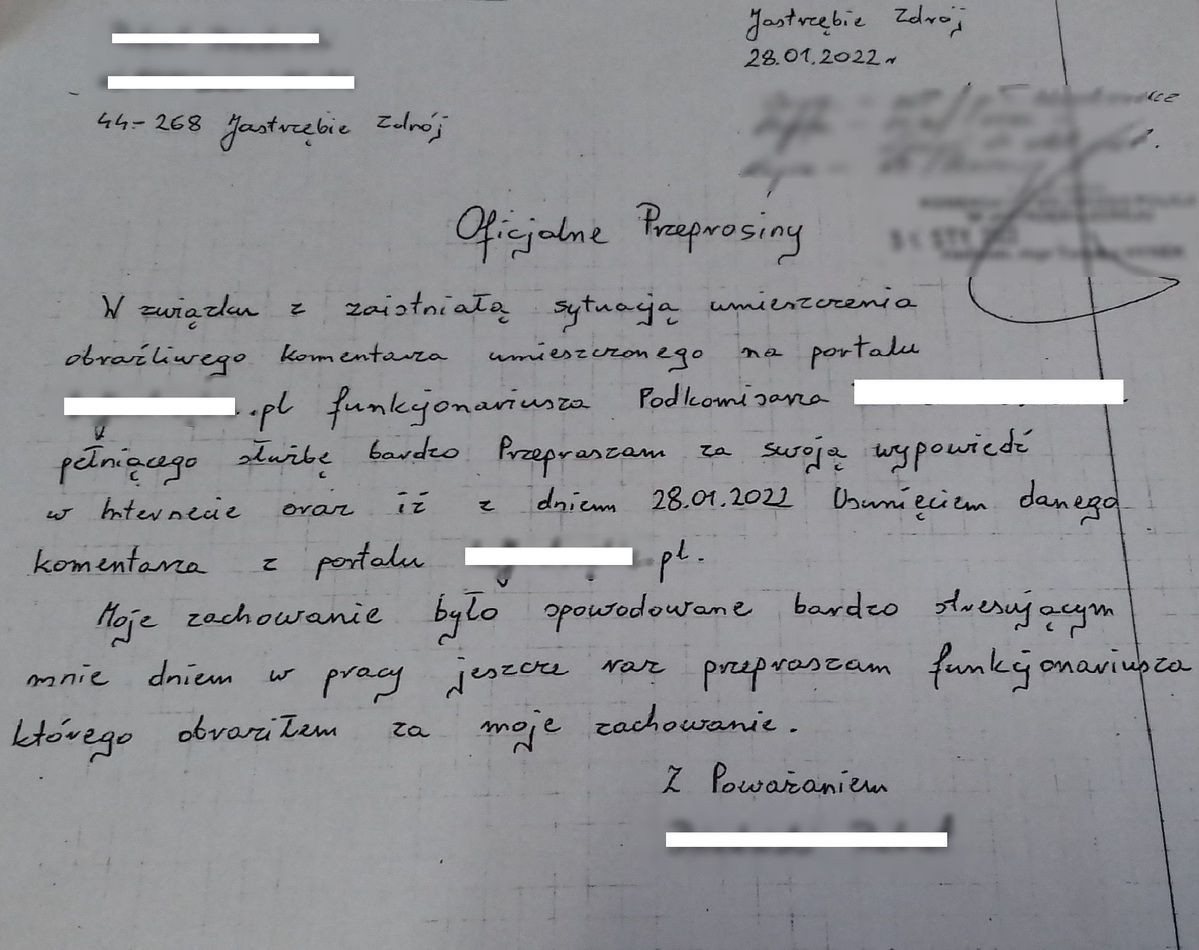 Jastrzębie Zdrój
28.01.2022r
44-268 Jastrzębie Zdrój
Oficjalne Przeprosiny
W związku z zaistniałą sytuacją umieszczenia
obraźliwego komentarza umieszczonego na portalu
.pl funkcjonariusza Podkomisarza
pełniącego służbę bardzo Przepraszam za swoją wypowiedź
w Internecie oraz iż z dniem 28.01.2022 Usunięciem danego
komentarza z portalu .pl.
Moje zachowanie było spowodowane bardzo stresującym
mnie dniem w pracy jeszcze raz przepraszam funkcjonariusza
którego obraziłem za moje zachowanie.
Z Poważaniem